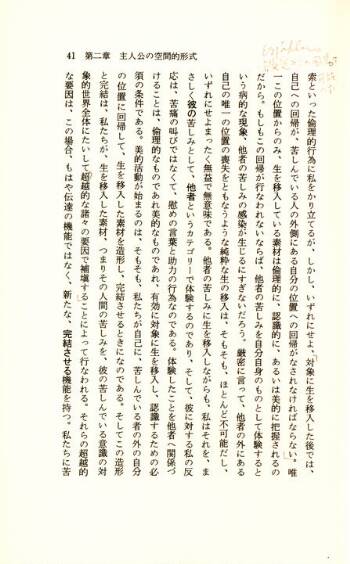 41　第二章　主人公の空間的形式
索といった倫理的行為に私をかり立てるが、しかし、いずれにせよ、対象に生を移入した後では、
自己への回帰が、苦しんでいる人の外側にある自分の位置への回帰がなされなければならない。唯
一この位置からのみ、生を移入している素材は倫理的に、認識的に、あるいは美的に把握されるの
だから。もしもこの回帰が行なわれないならば、他者の苦しみを自分自身のものとして体験すると
いう病的な現象、他者の苦しみの感染が生じるにすぎないだろう。厳密に言って、他者の外にある
自己の唯一の位置の喪失をともなうような純粋な生の移入は、そもそも、ほとんど不可能だし、
いずれにせよまったく無益で無意味である。他者の苦しみに生を移入しながらも、私はそれを、ま
さしく彼の苦しみとして、他者というカテゴリーで体験するのであり、そして、彼に対する私の反
応は、苦痛の叫びではなくて、慰めの言葉と助力の行為なのである。体験したことを他者へ関係づ
けることは、倫理的なものであれ美的なものであれ、有効に対象に生を移入し、認識するための必
須の条件である。美的活動が始まるのは、そもそも、私たちが自己に、苦しんでいる者の外の自分
の位置に回帰して、生を移入した素材を造形し、完結させるときになのである。そしてこの造形
と完結は、私たちが、生を移入した素材、つまりその人間の苦しみを、彼の苦しんでいる意識の対
象的世界全体にたいして超越的な諸々の要因で補填することによって行なわれる。それらの超越的
な要因は、この場合、もはや伝達の機能ではなく、新たな、完結させる機能を持つ。私たちに苦